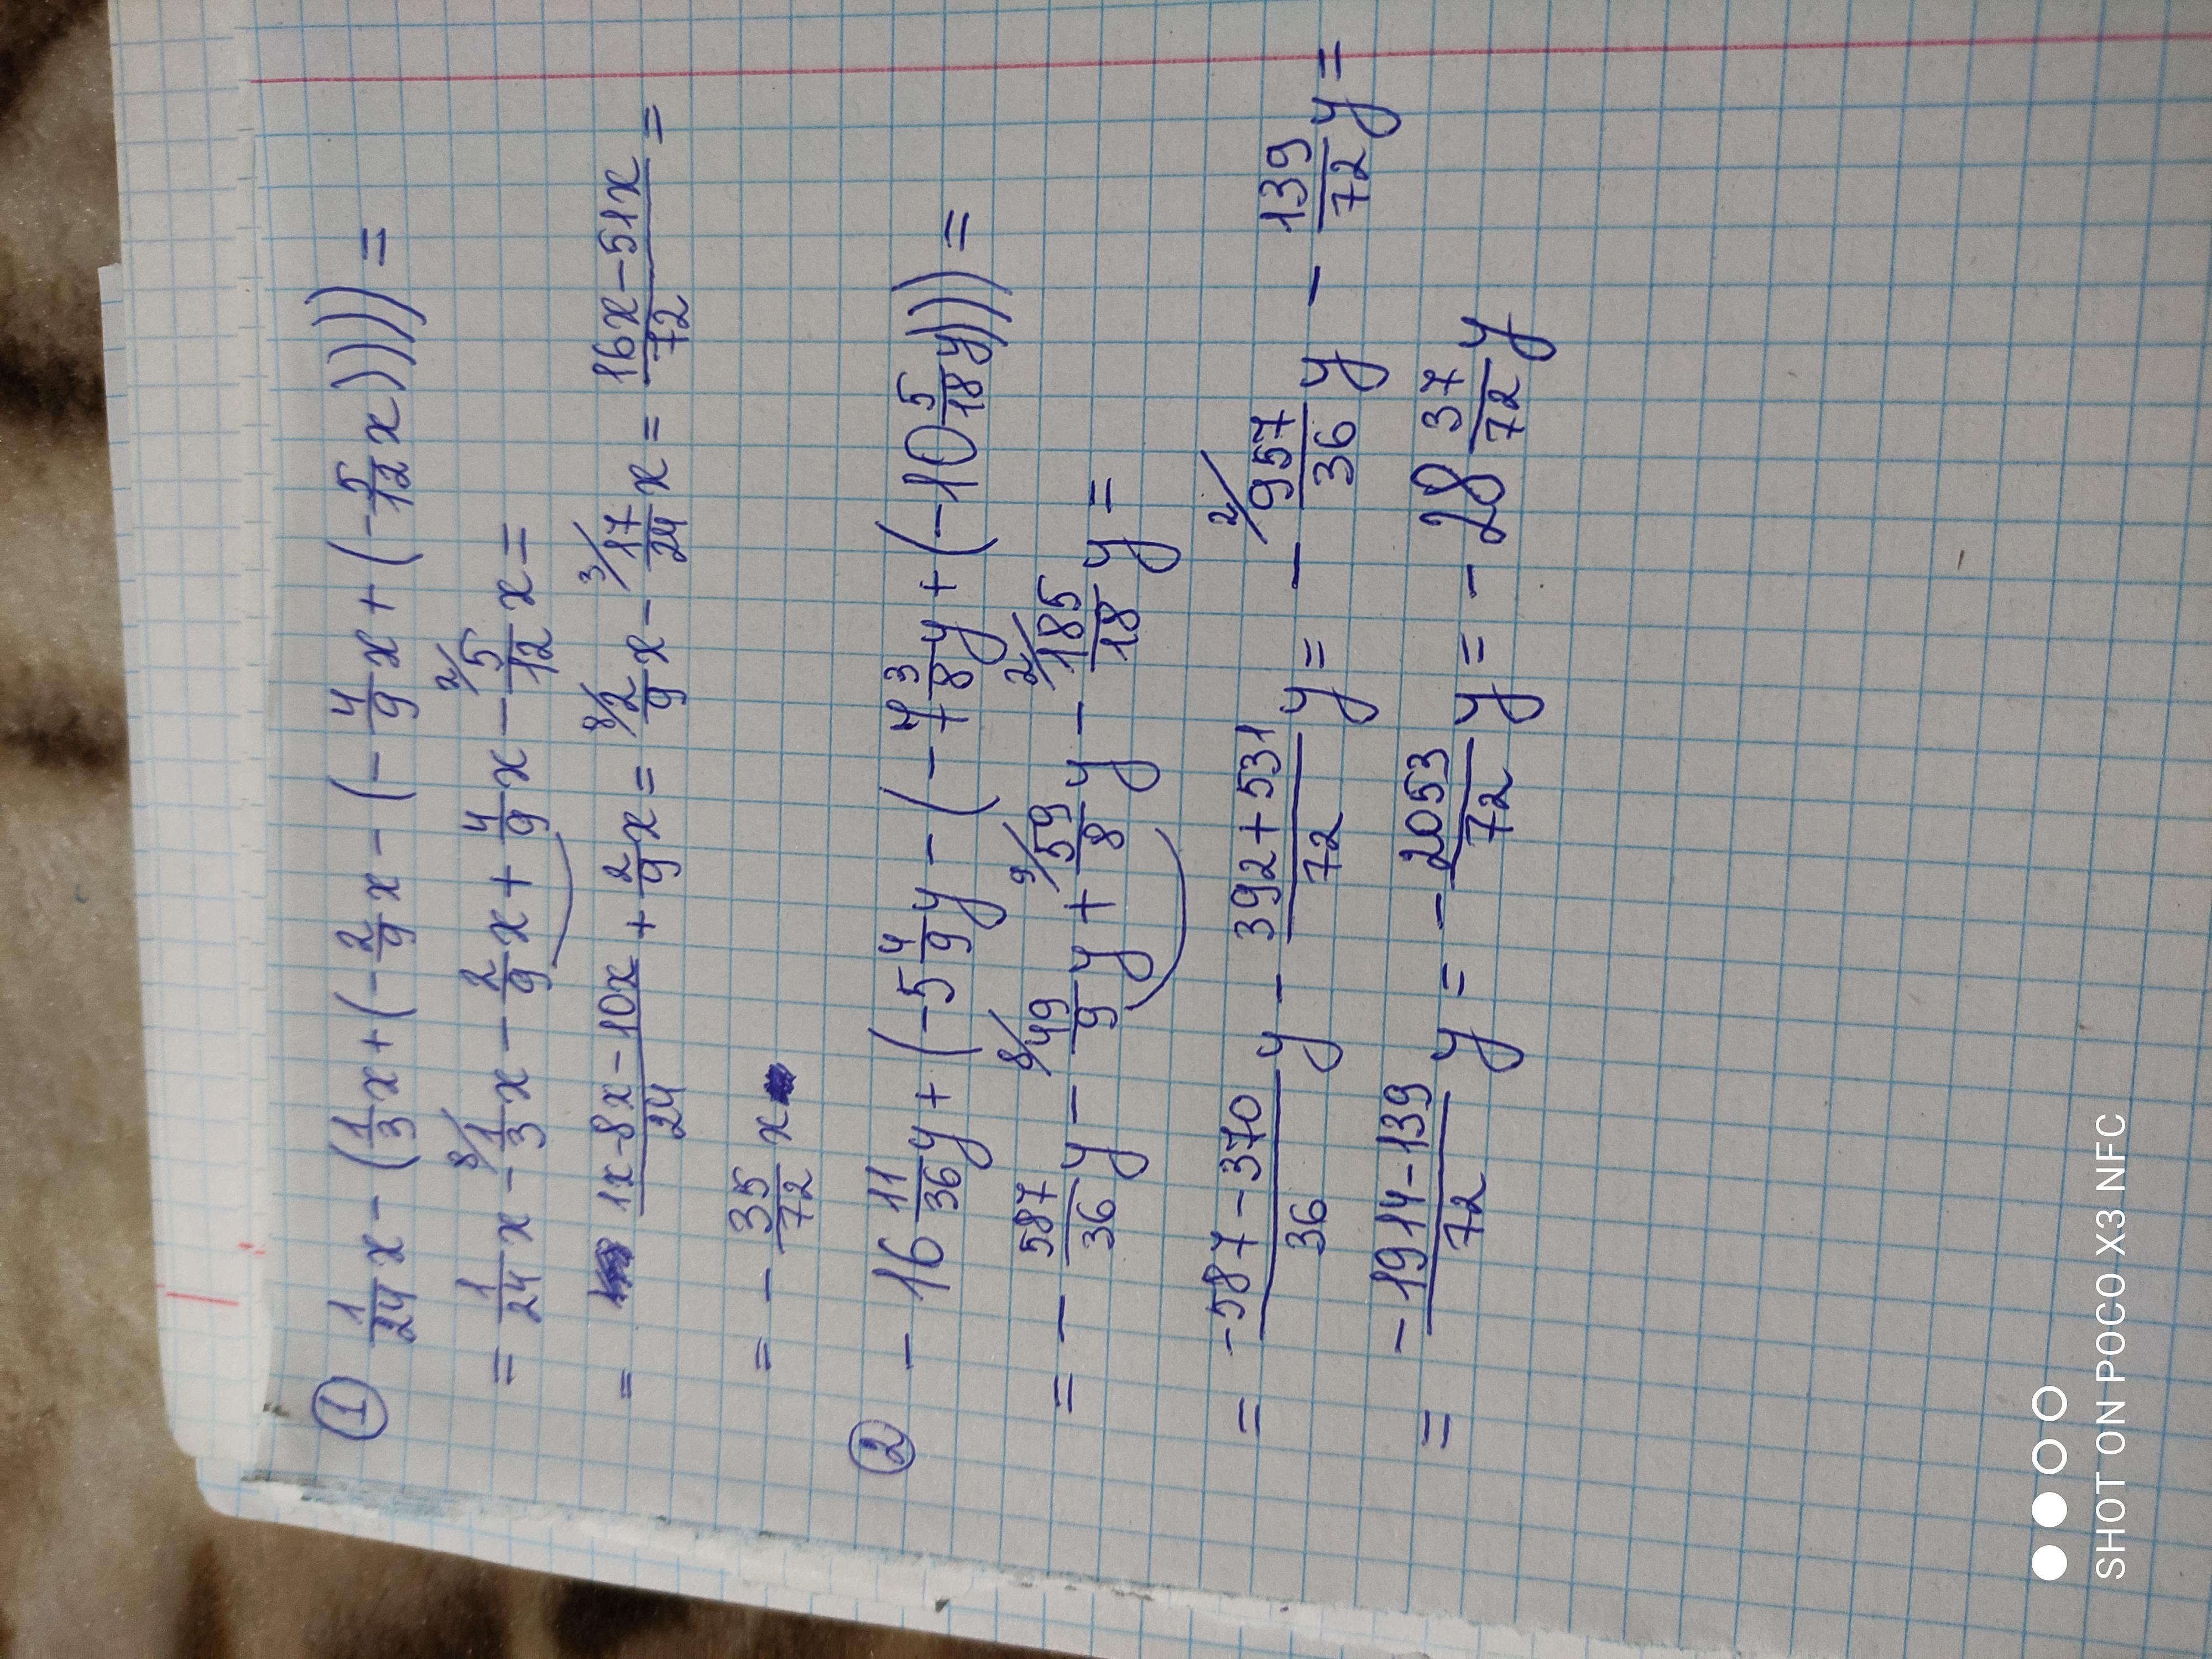 ① 1/24 x - (1/3 x + (- 2/9 x - (- 4/9 x + (- 5/12 x)))) =
= 1/24 x - 8/ 1/3 x - 2/9 x + 4/9 x - 2/ 5/12 x =
= 1x - 8x - 10x/24 + 2/9 x = 8/ 2/9 x - 3/ 17/24 x = 16x - 51x/72 =
= - 35/72 x
② - 16 11/36 y + (-5 4/9 y - (- 7 3/8 y + (-10 5/18 y))) =
= - 587/36 y - 8/ 49/9 y + 9/ 59/8 y - 2/ 185/18 y =
= -587 - 370/36 y - 392 + 531/72 y = - 2/ 957/36 y - 139/72 y =
= -1914 - 139/72 y = - 2053/72 y = - 28 37/72 y
SHOT ON POCO X3 NFC